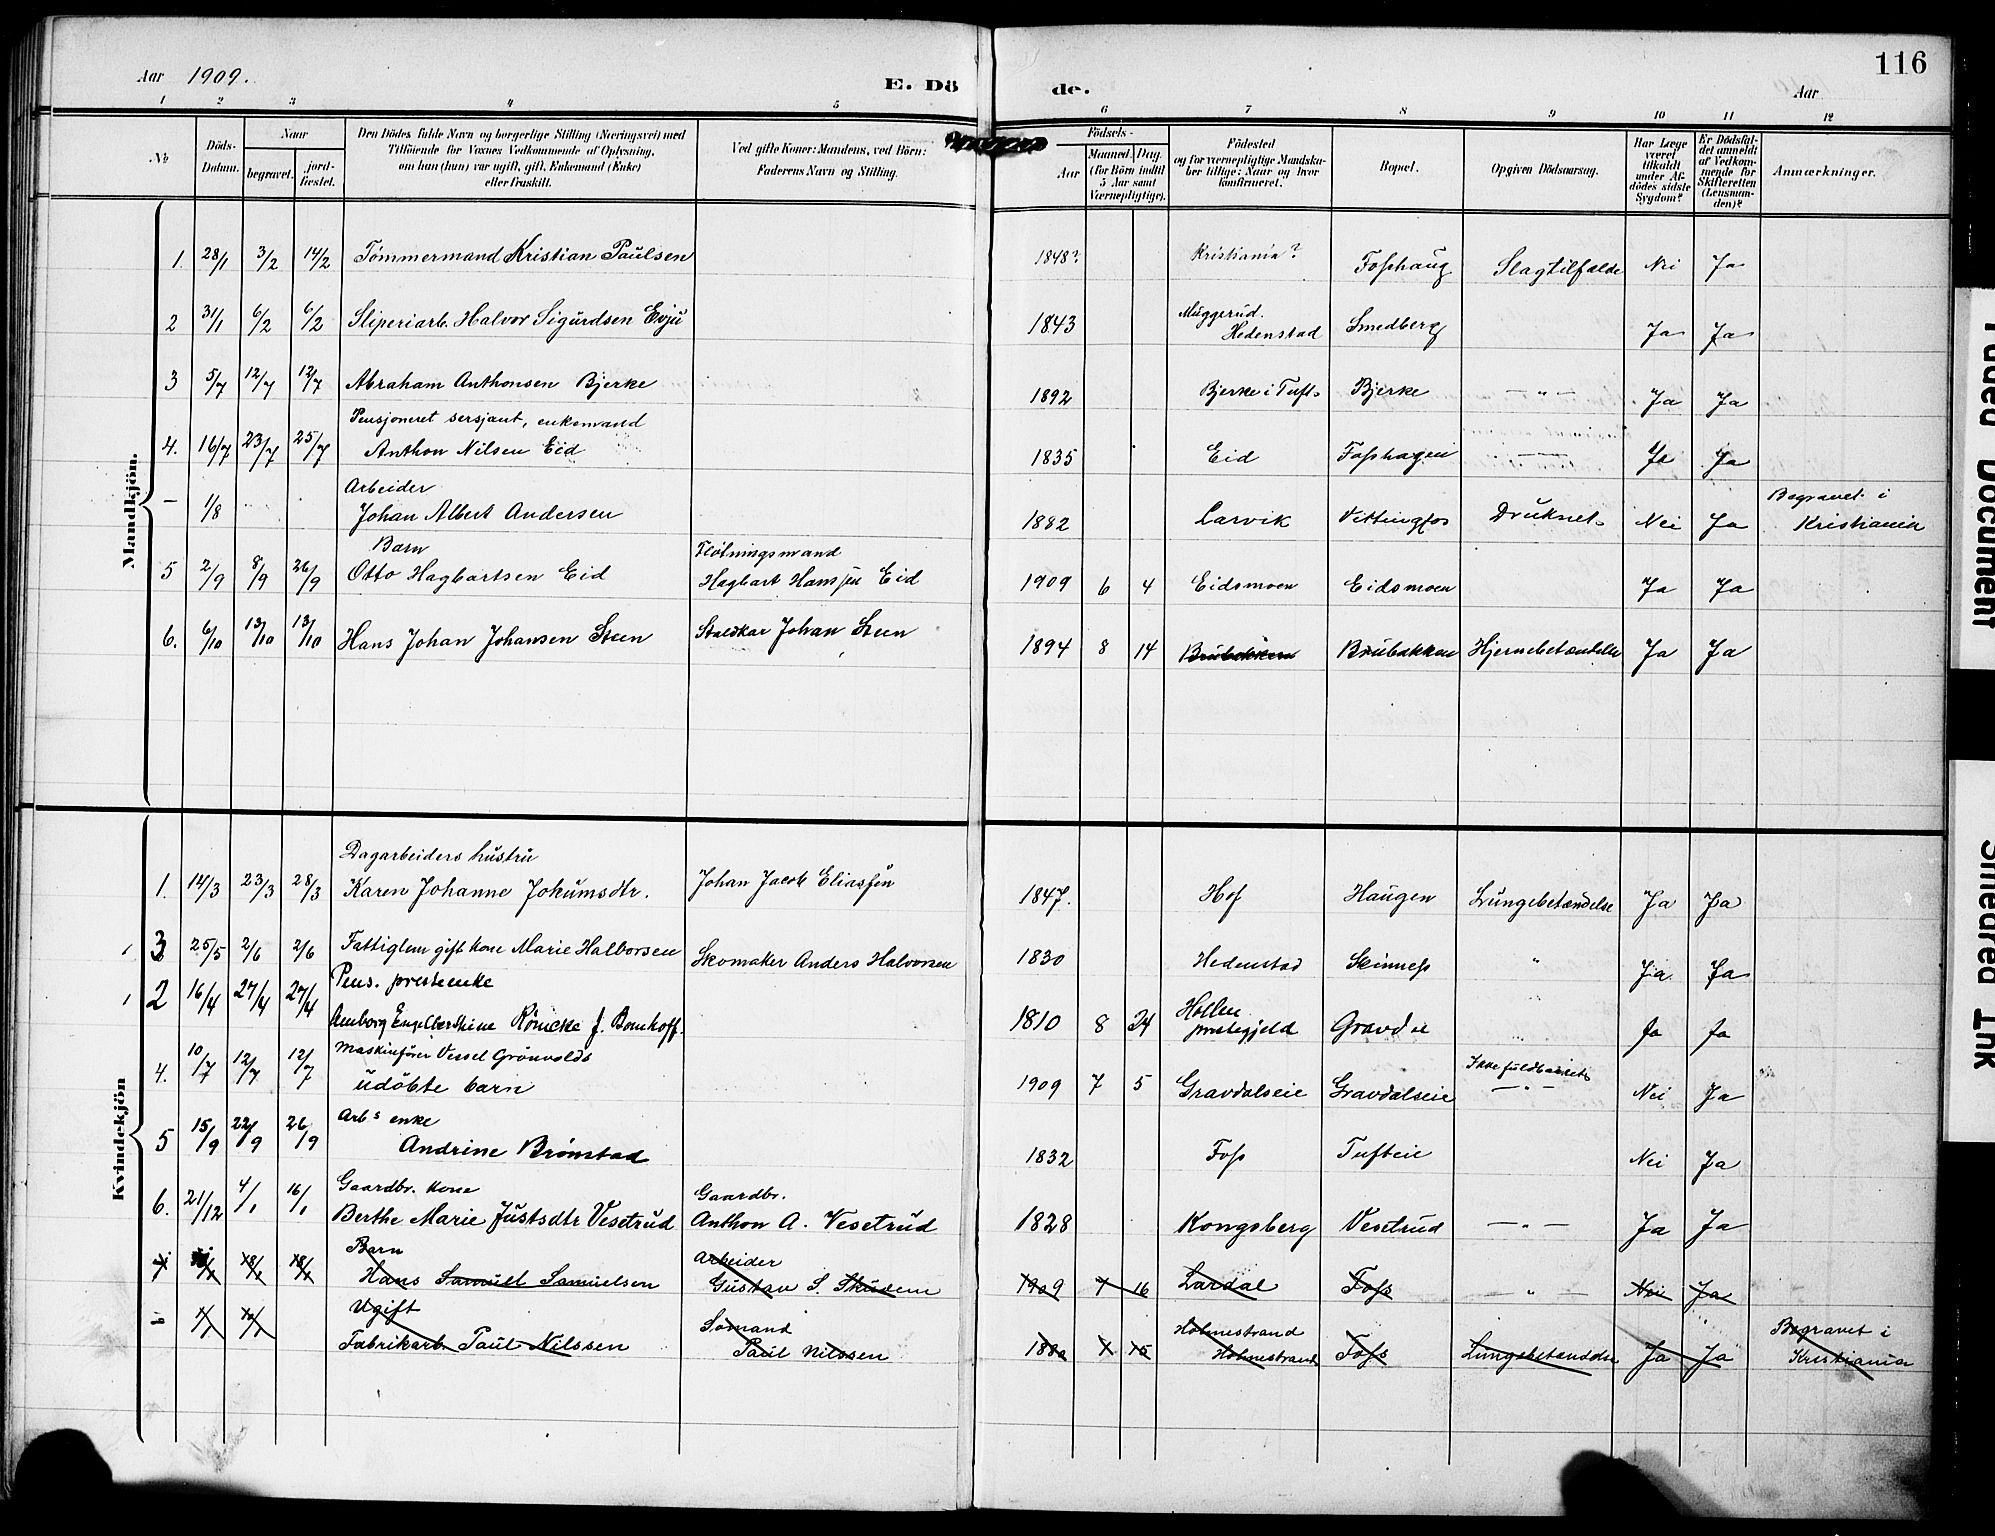 Aar 1909. E. Dö de. Aar 116
1 2 3 4 5 6 7 8 9 10 11 12
No
Döds-Datum.
Naar
begravet.
jord-fæstet.
Den Dödes fulde Navn og borgerlige Stilling (Næringsvei) med
Tilföiende for Voxnes Vedkommende af Oplysning,
om han (hun) var ugift, gift, Enkemand (Enke)
eller fraskilt.
Ved gifte Koner: Mandens, ved Börn:
Faderens Navn og Stilling.
Födsels-
Aar
Maaned. Dag.
(for Börn indtil
5 Aar samt
Værnepligtige).
Födested
og for værnepligtige Mandska-
ber tillige: Naar og hvor
konfirmeret.
Bopæl.
Opgiven Dödsaarsag.
Har Læge
været
tilkaldt
under Af-
dödes sidste
Sygdom?
Er Dödsfal-
det anmeldt
af Vedkom-
mende for
Skifteretten
(Lensman-
den)?
Anmærkninger.
Mandkjön.
1. 28/1 3/2 14/2 Tömmermand Kristian Paulsen 1848? Kristiania? Fosshaug Slagtilfælde Nei Ja
2 31/1 6/2 6/2 Sliperiarb. Halvor Sigurdsen Evju 1843 Muggerud. Hedenstad Smedberg Ja Ja
3 5/7 12/7 12/7 Abraham Anthonsen Bjerke 1892 Bjerke i Tufts Bjerke — " — Ja Ja
Pensjoneret sersjant, enkemand
4. 16/7 23/7 25/7 Anthon Nilsen Eid 1835 Eid Fosshagen — " — Ja Ja
Arbeider Begravet i
– 1/8 Johan Albert Andersen 1882 Larvik Vittingfos Druknet Nei Ja Kristiania
Barn Fløtningsmand
5 2/9 8/9 26/9 Otto Hagbartsen Eid Hagbart Hanssen Eid 1909 6 4 Eidsmoen Eidsmoen Ja Ja
6. 6/10 13/10 13/10 Hans Johan Johansen Steen Staldkar Johan Steen 1894 8 14 Brubakken Brubakken Hjernebetændelse Ja Ja
Kvindekjön
Dagarbeiders hustru
1. 14/3 23/3 28/3 Karen Johanne Jokumsdtr. Johan Jacob Eliassen 1847. Hof Haugen Lungebetændelse Ja Ja
3 25/5 2/6 2/6 Fattiglem gift kone Marie Halvorsen Skomaker Anders Halvorsen 1830 Hedenstad Skinnes " Ja Ja
Pens. presteenke
2 16/4 27/4 27/4 Engelbertine f. Bomhoff. 1810 8 24 Hollen prestegjeld Ja Ja
Maskinfører Vessel Grönvolds
4. 10/7 12/7 12/7 udöbte barn 1909 7 5 Gravdalseie Gravdalseie Ikke fuldbaaret — " — Nei Ja
Arbs enke
5 15/9 22/9 26/9 Andrine Brönstad 1832 Foss Tufteie Nei Ja
Gaardbr. kone Gaardbr.
6. 21/12 4/1 16/1 Berthe Marie Justsdtr Vesetrud Anthon A. Vesetrud 1828 Kongsberg Vesetrud — " — Ja Ja
Barn Arbeider
7 18/1 18/1 Hans Samuel Samuelsen Gustav S. 1909 7 16 Lardal Foss — " — Nei Ja
Ugift Sömand Holmestrand Begravet i
– Fabrikarb. Paul Nilssen Paul Nilssen Holmestrand Foss Lungebetændelse Ja Ja Kristiania
Faded Document
Smeared Ink